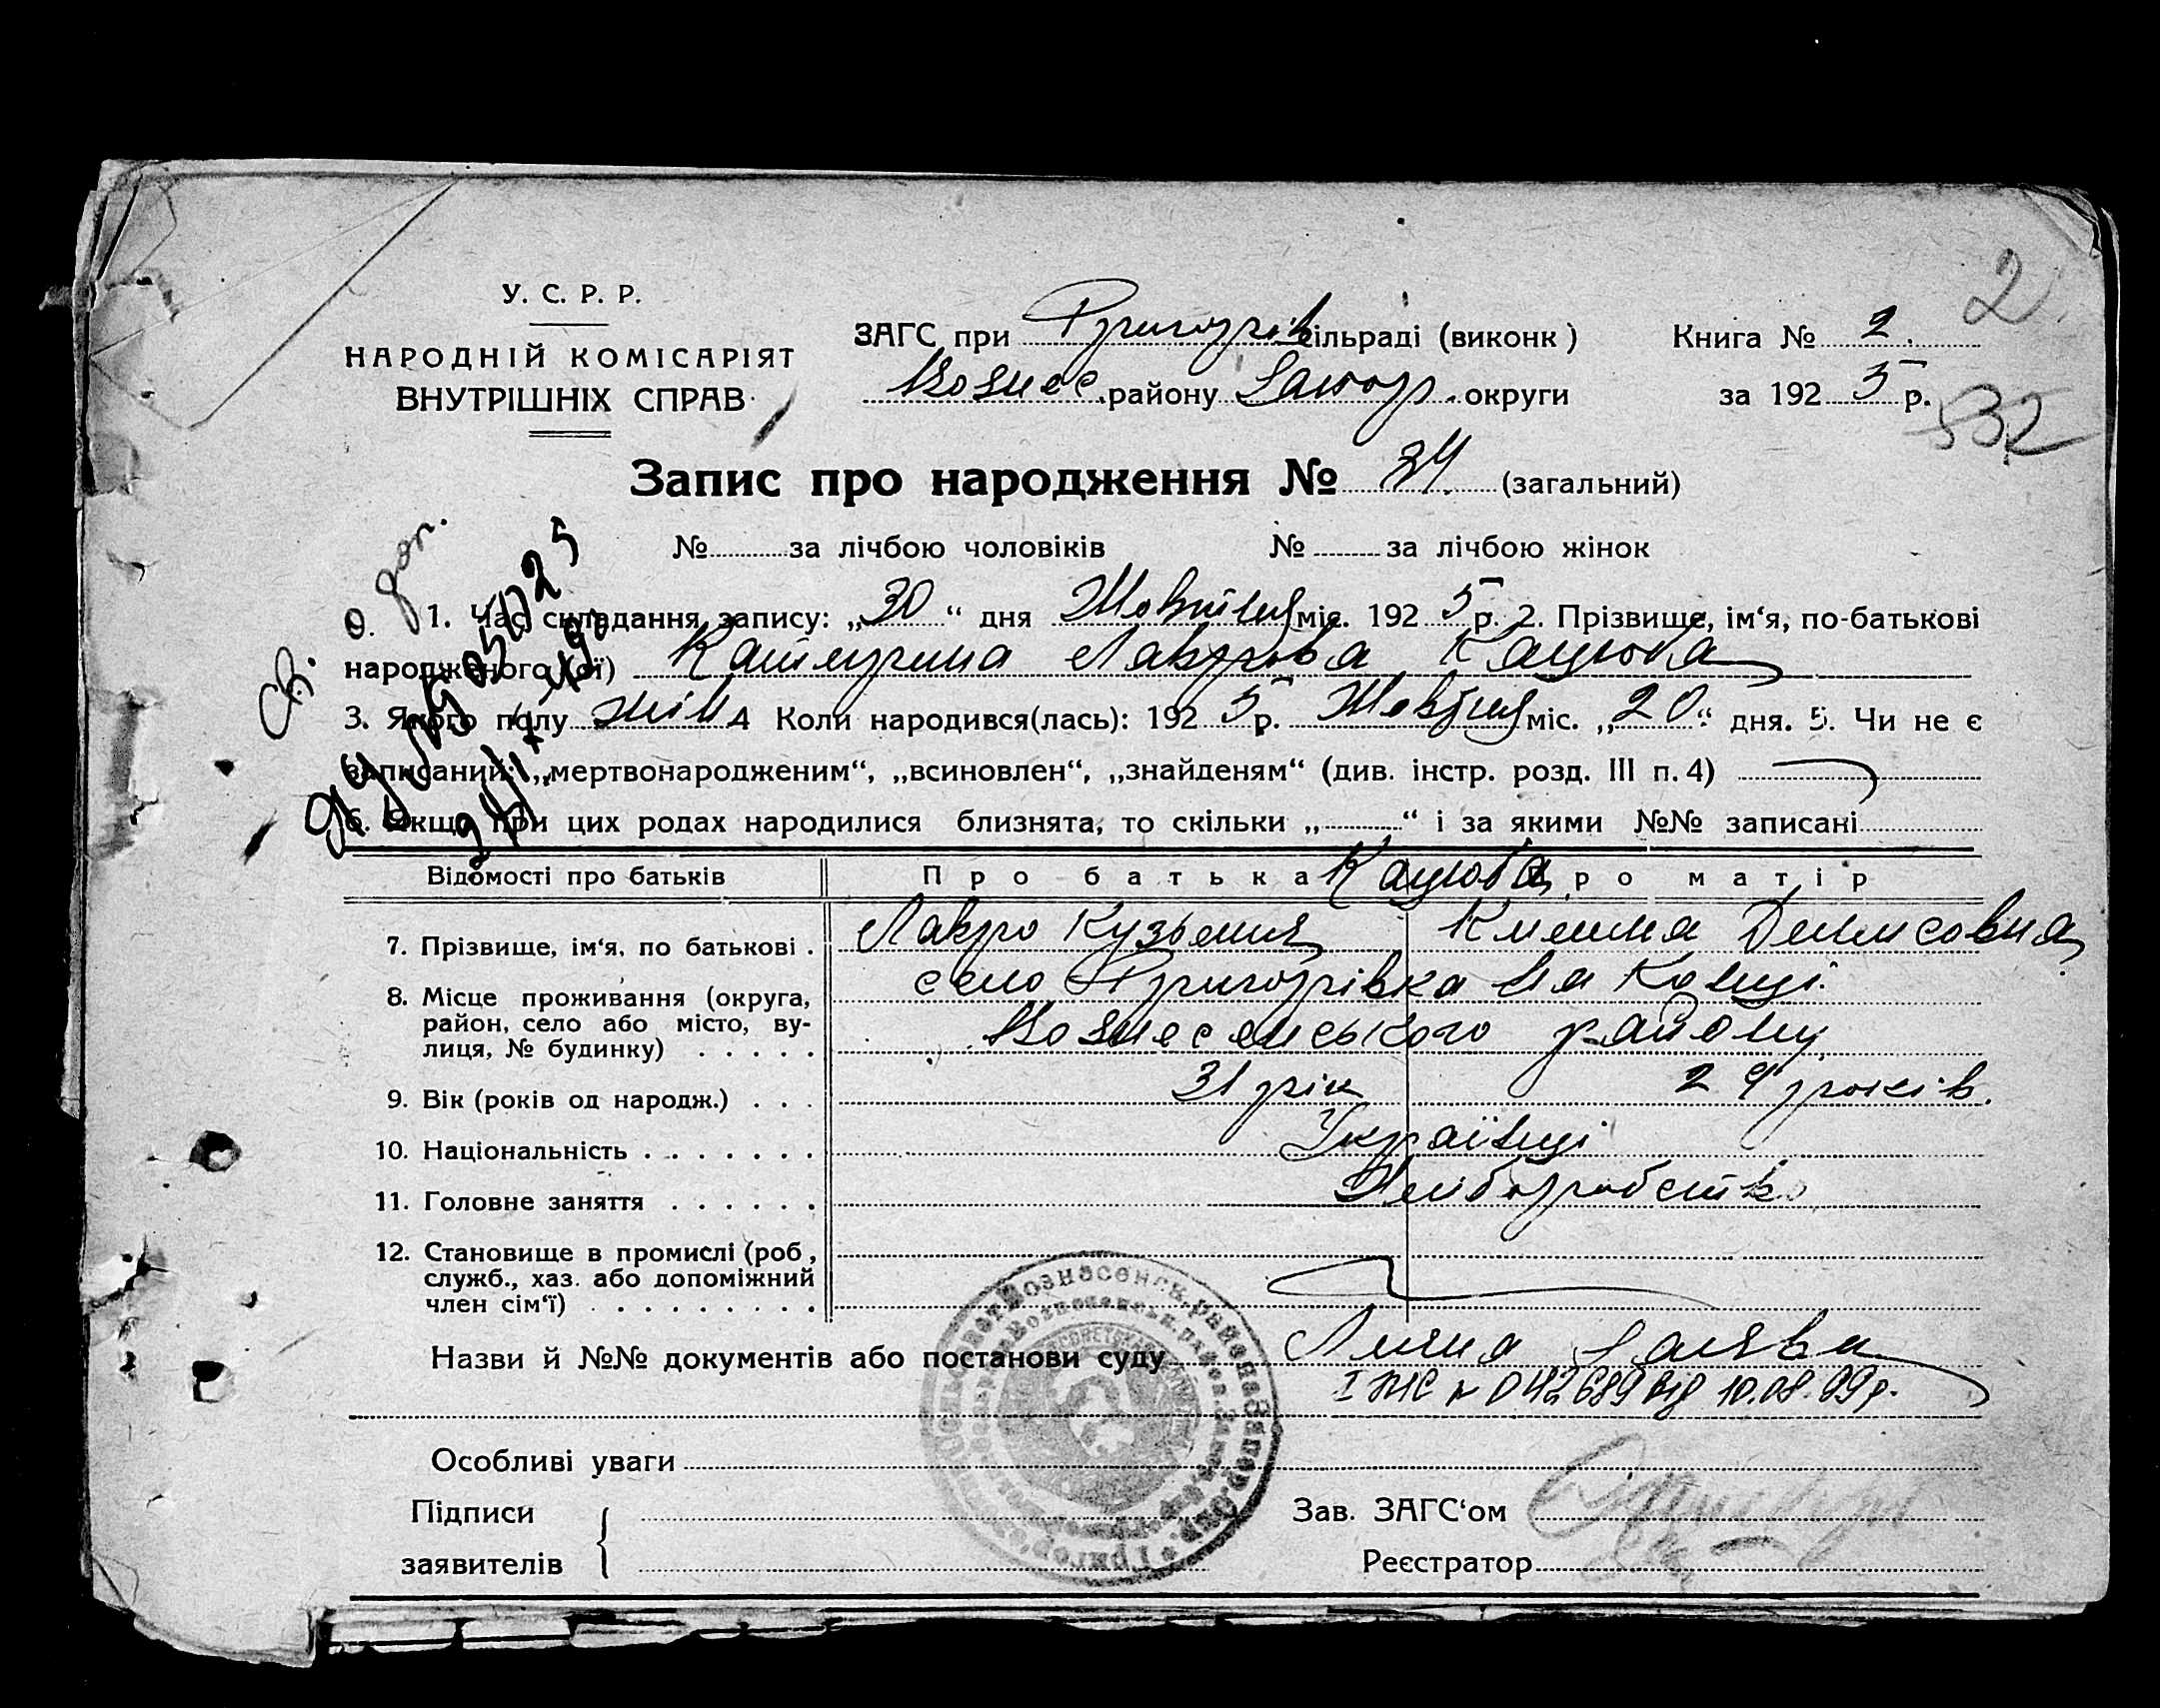 У. С. Р. Р.
НАРОДНІЙ КОМІСАРІЯТ
ВНУТРІШНІХ СПРАВ
ЗАГС при Григорів сільраді (виконк)
Вознес. району Запор. округи
Книга № 2.
за 1925 р.
2
532
Запис про народження № 34 (загальний)
№ за лічбою чоловіків № за лічбою жінок
1. Час складання запису: „30“ дня Жовтня міс. 1925 р. 2. Прізвище, ім'я, по-батькові
народженого (ої) Катерина Лаврова Кацюба
3. Якого полу жін 4 Коли народився(лась): 1925 р. Жовтня міс. „20“ дня. 5. Чи не є
записаний: „мертвонародженим“, „всиновлен“, „знайденям“ (див. інстр. розд. III п. 4)
6. Якщо при цих родах народилися близнята, то скільки „ “ і за якими №№ записані
Відомості про батьків Про батька Кацюба Про матір
7. Прізвище, ім'я, по батькові . Лавро Кузьмич Денисовна
8. Місце проживання (округа, село Григорівка
район, село або місто, ву- Вознесенського району
лиця, № будинку) . . . . .
9. Вік (років од народж.) . . . 31 рік 29 років.
10. Національність . . . . . . . Українці
11. Головне заняття . . . . . . Хліборобство
12. Становище в промислі (роб,
служб., хаз. або допоміжний
член сім'ї) . . . . . . . . .
Назви й №№ документів або постанови суду Лична заява
І ЖС № 042689 від 10.08.99р.
Особливі уваги
Підписи
заявителів
Зав. ЗАГС'ом
Реєстратор